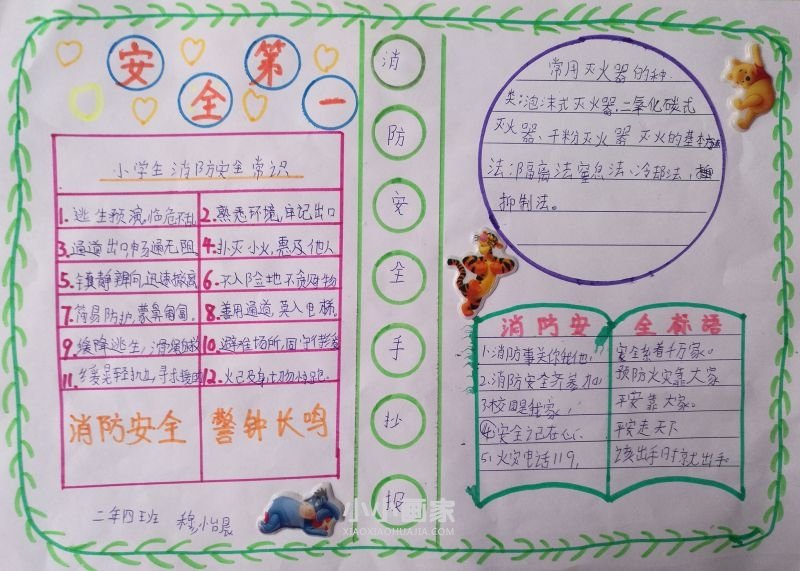 安全第一
小学生消防安全常识
1.逃生预演,临危不乱
2.熟悉环境,牢记出口
3.通道出口,畅通无阻
4.扑灭小火,惠及他人
5.镇静辨向,迅速撤离
6.不入险地不贪财物
7.简易防护,蒙鼻匍匐
8.善用通道,莫入电梯
9.缓降逃生,滑绳自救
10.避难场所,固守待援
11.缓晃轻抛,寻求援助
12.火已及身,切勿惊跑
消防安全
警钟长鸣
二年四班
消防安全手抄报
常用灭火器的种
类:泡沫式灭火器,二氧化碳式
灭火器、干粉灭火器 灭火的基本方
法:隔离法窒息法、冷却法,
抑制法。
消防安全标语
1.消防事关你我他,安全系着千万家。
2.消防安全齐参加 预防火灾靠大家
3.校园是我家,平安靠大家。
4.安全记在心 平安走天下
5.火灾电话119,该出手时就出手
小小画家
XIAOXIAOHUAJIA.COM